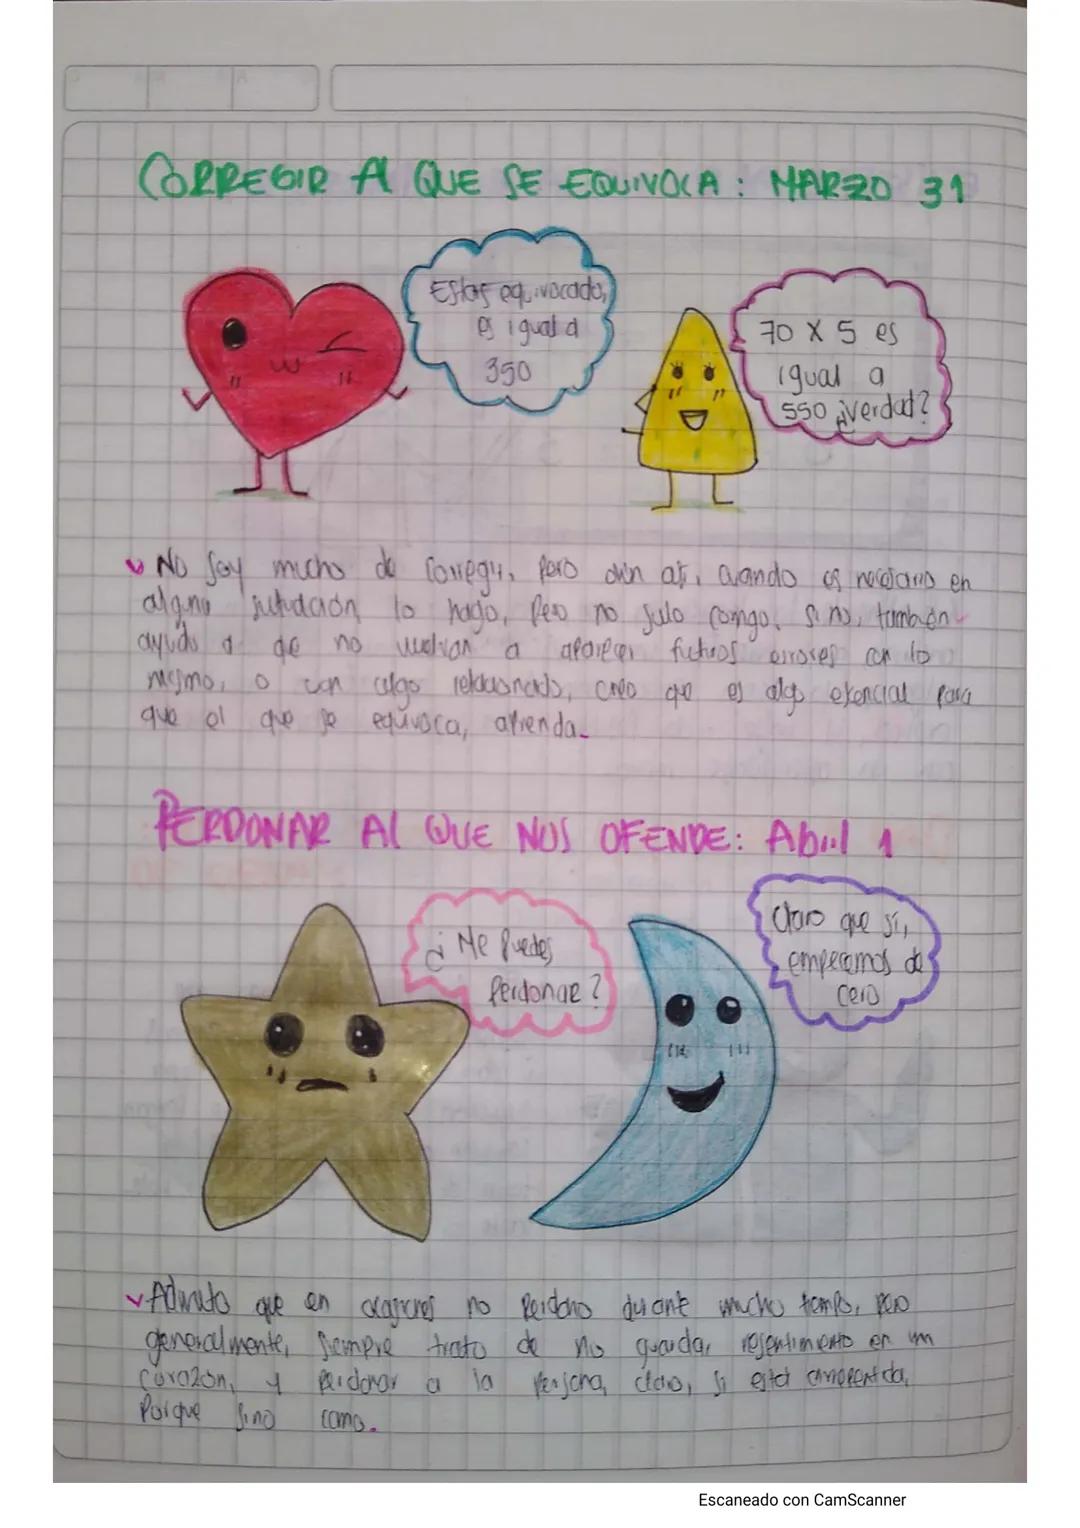 CORREGIR Al QUE SE EQUIVOCA: MARZO 31
Estas equivocado,
es igual a
350
70 X 5 es
igual a
550 ¿verdad?
No soy mucho de corregir, pero aún así, cuando es necesario en
alguna situdación, lo hago, Pero no sulo corrigo, si no, también
ayudo a qe no vuelvan a aparecer futuros errores con lo
mismo, o con algo relacionado, creo qe es algo esencial para
que el que se equivoca, aprenda.
PERDONAR Al QUE NOS OFENDE: Abril 1
¿Me Puedes
Perdonar?
Claro que sí,
empecemos de
cero
Admito que en ocasiones no Perdono durante mucho tiempo, pero
generalmente, siempre trato de no guardar resentimiento en mi
corazón, y perdonar a la Persona, claro, si está arrepentida,
Porque sino como.
Escaneado con CamScanner